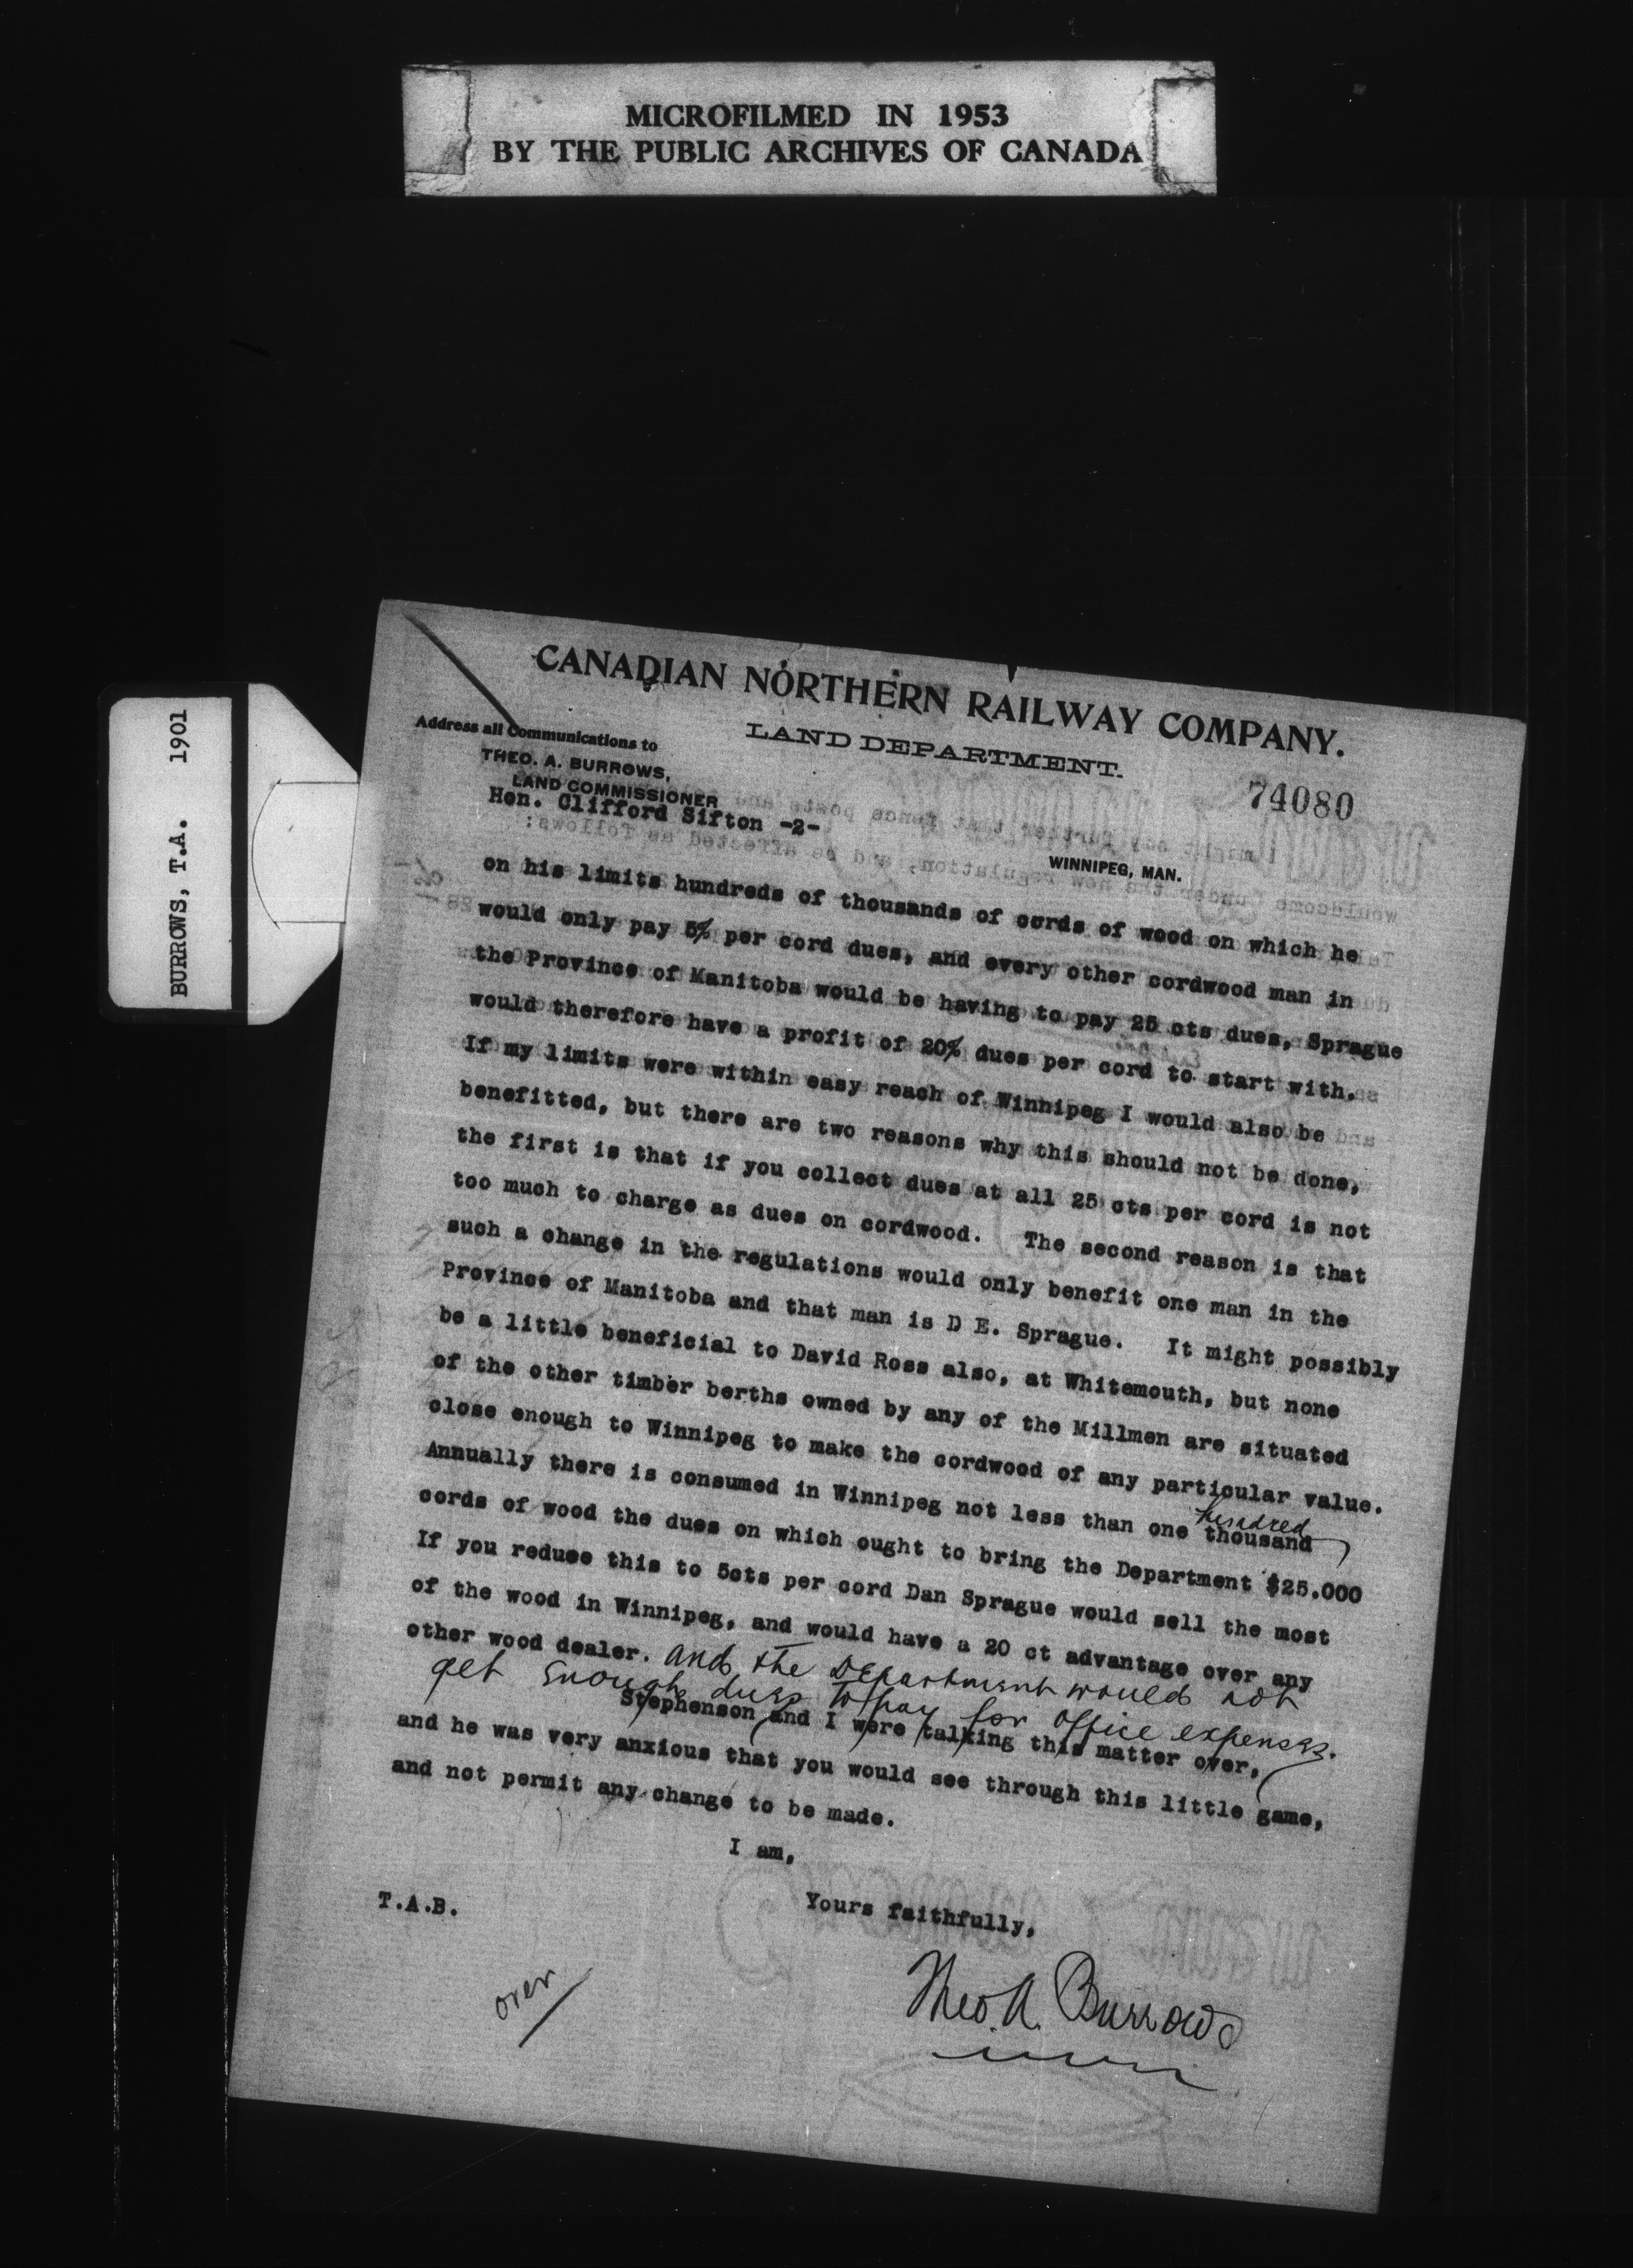 MICROFILMED IN 1953
BY THE PUBLIC ARCHIVES OF CANADA
BURROWS, T.A. 1901
CANADIAN NORTHERN RAILWAY COMPANY.
LAND DEPARTMENT.
Address all Communications to
THEO. A. BURROWS,
LAND COMMISSIONER
74080
Hon. Clifford Sifton -2-
WINNIPEG, MAN.
on his limits hundreds of thousands of cords of wood on which he
would only pay 5% per cord dues, and every other cordwood man in
the Province of Manitoba would be having to pay 25 cts dues, Sprague
would therefore have a profit of 20% dues per cord to start with.
If my limits were within easy reach of Winnipeg I would also be
benefitted, but there are two reasons why this should not be done,
the first is that if you collect dues at all 25 cts per cord is not
too much to charge as dues on cordwood. The second reason is that
such a change in the regulations would only benefit one man in the
Province of Manitoba and that man is D E. Sprague. It might possibly
be a little beneficial to David Ross also, at Whitemouth, but none
of the other timber berths owned by any of the Millmen are situated
close enough to Winnipeg to make the cordwood of any particular value.
Annually there is consumed in Winnipeg not less than one hundred thousand
cords of wood the dues on which ought to bring the Department $25.000
If you reduce this to 5cts per cord Dan Sprague would sell the most
of the wood in Winnipeg, and would have a 20 ct advantage over any
other wood dealer. and the Department would not
get enough dues to pay for office expenses.
Stephenson and I were talking this matter over,
and he was very anxious that you would see through this little game,
and not permit any change to be made.
I am,
Yours faithfully,
T.A.B.
Theo. A. Burrows
over